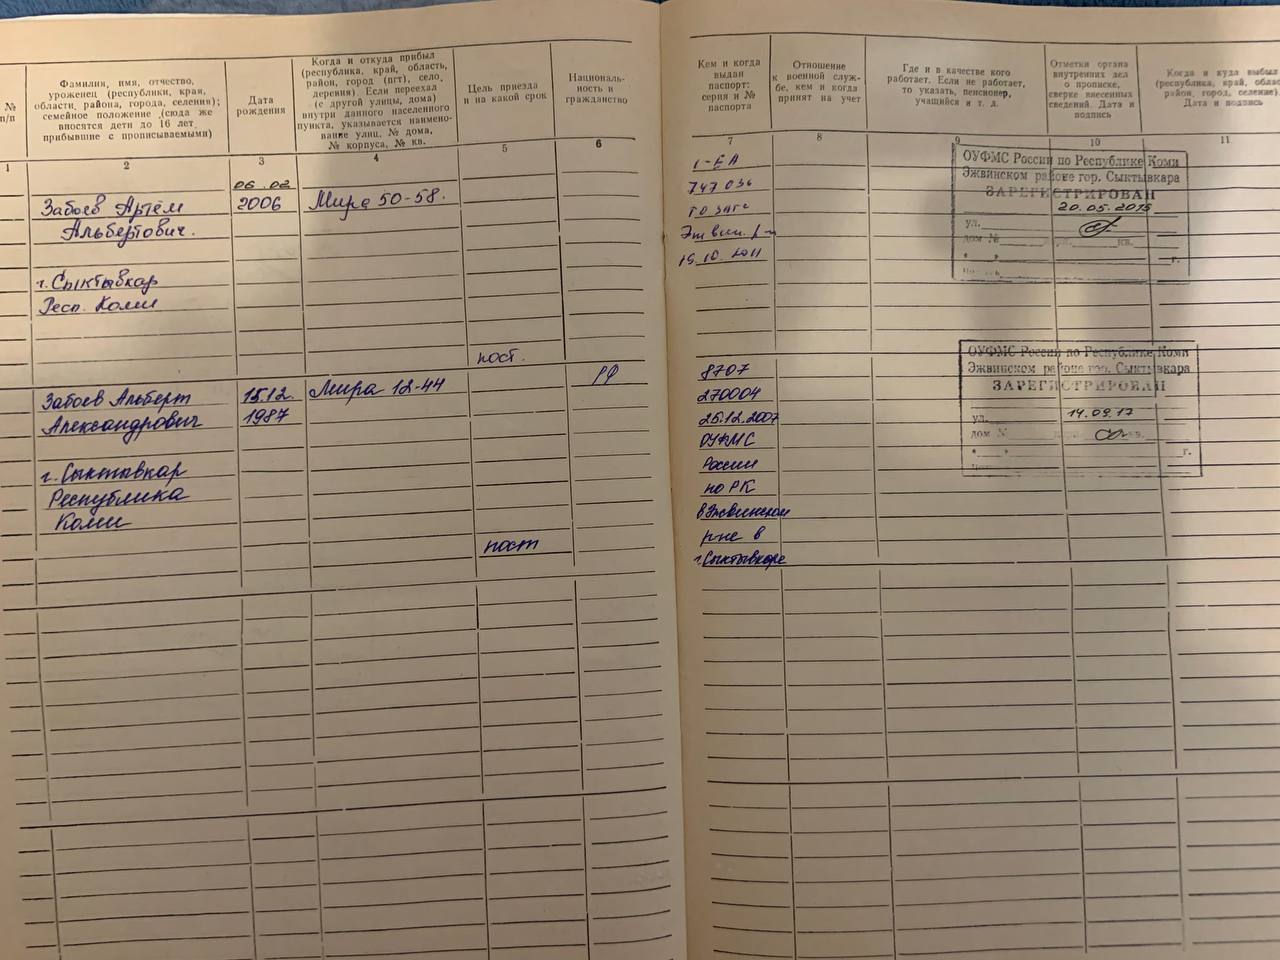 №
п/п
Фамилия, имя, отчество,
уроженец (республики, края,
области, района, города, селения);
семейное положение (сюда же
вносятся дети до 16 лет,
прибывшие с прописываемыми)
Дата
рождения
Когда и откуда прибыл
(республика, край, область,
район, город (пгт), село,
деревня). Если переехал
(с другой улицы, дома)
внутри данного населенного
пункта, указывается наимено-
вание улиц, № дома,
№ корпуса, № кв.
Цель приезда
и на какой срок
Националь-
ность и
гражданство
1
2
3
4
5
6
06.02
2006
Забоев Артём
Альбертович.
г. Сыктывкар
Респ. Коми
Мира 50-58.
пост.
Забоев Альберт
Александрович
г. Сыктывкар
Республика
Коми
15.12.
1987
Мира 12-44
пост
РФ
Кем и когда
выдан
паспорт:
серия и №
паспорта
Отношение
к военной служ-
бе, кем и когда
принят на учет
Где и в качестве кого
работает. Если не работает,
то указать, пенсионер,
учащийся и т. д.
Отметки органа
внутренних дел
о прописке,
сверке внесенных
сведений. Дата и
подпись
Когда и куда выбыл
(республика, край, обл
район, город, селение).
Дата и подпись
7
8
9
10
11
I-ЕА
747036
ТО ЗАГС
Эжвин. р-н
19.10.2011
ОУФМС России по Республике Коми
Эжвинском районе гор. Сыктывкара
ЗАРЕГИСТРИРОВАН
20.05.2015
ул.
дом № кв.
г.
8707
270004
25.12.2007
ОУФМС
России
по РК
в Эжвинском
р-не в
г. Сыктывкаре
ОУФМС России по Республике Коми
Эжвинском районе гор. Сыктывкара
ЗАРЕГИСТРИРОВАН
14.09.17
ул.
дом № кв.
г.